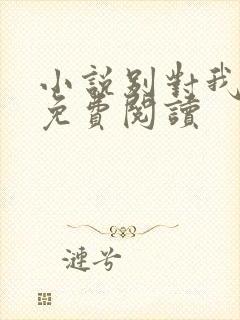 小說別對我
免費閱讀
漣兮